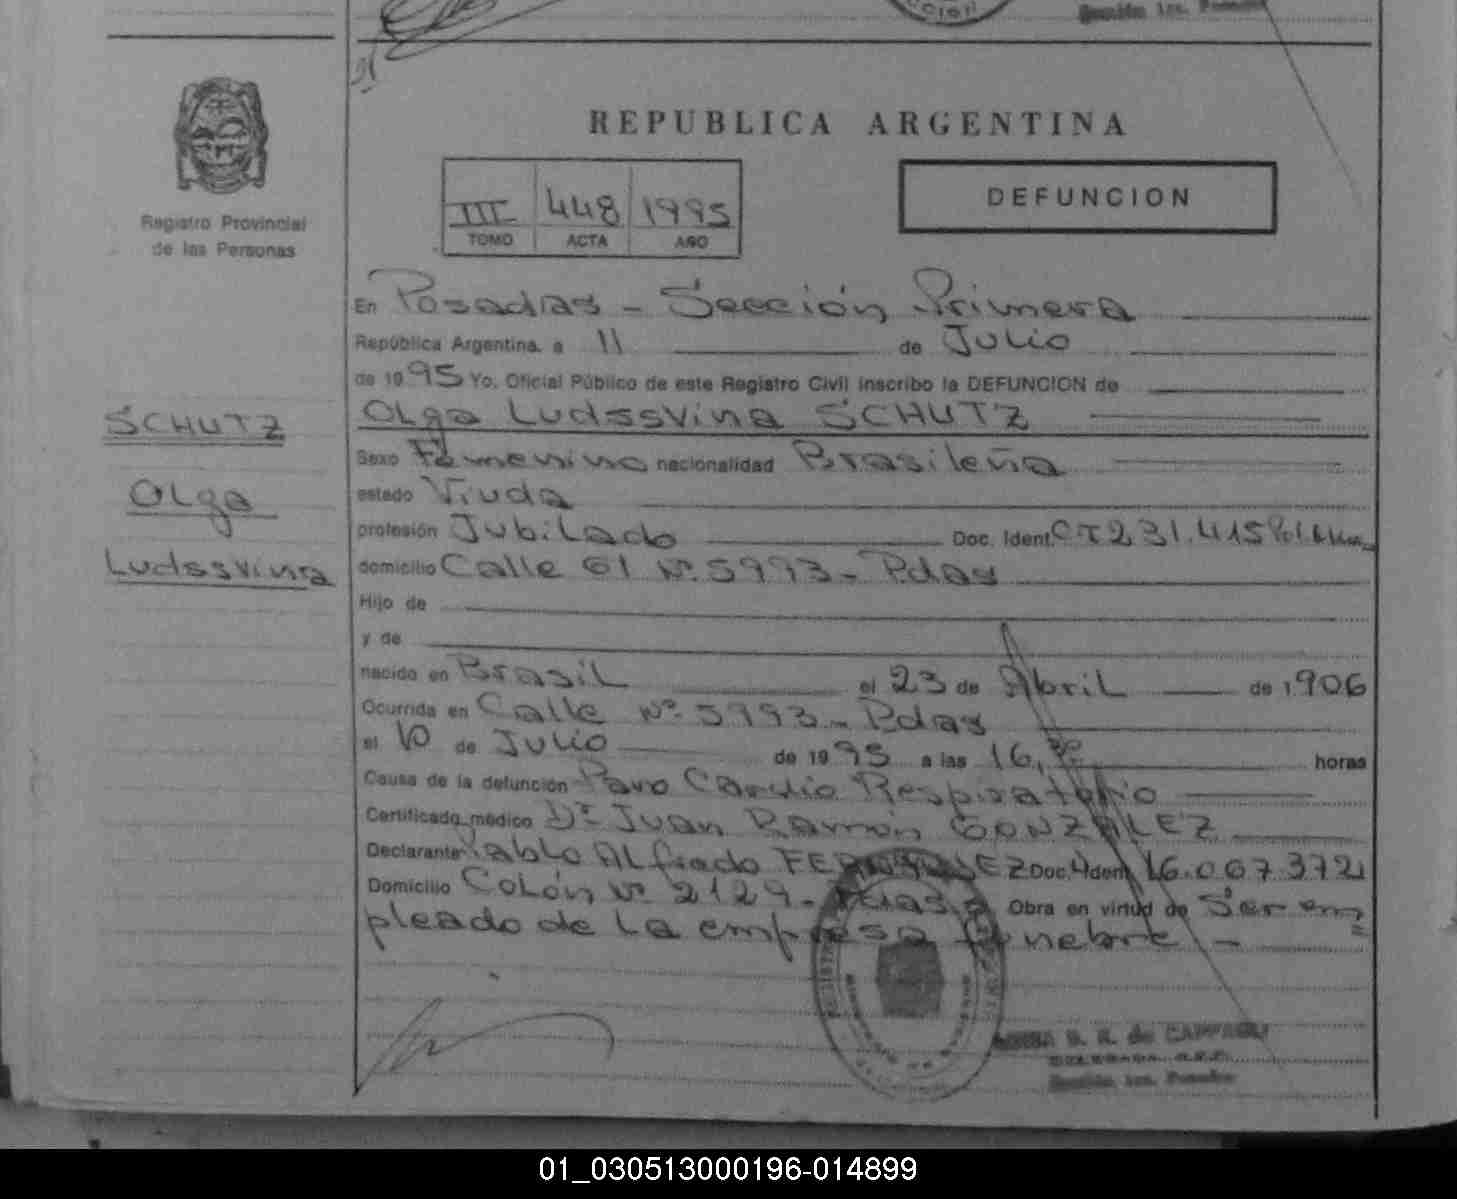 CCION
Sección 1ra. Posadas
Registro Provincial
de las Personas
REPUBLICA ARGENTINA
III 448 1995
TOMO ACTA AÑO
DEFUNCION
SCHUTZ
Olga
Ludssvina
En Posadas - Sección Primera
República Argentina, a 11 de Julio
de 1995 Yo, Oficial Público de este Registro Civil inscribo la DEFUNCION de
Olga Ludssvina SCHUTZ
Sexo Femenino nacionalidad Brasileña
estado Viuda
profesión Jubilado Doc. Ident. 231.415
domicilio Calle 61 Nº 5993 - Pdas
Hijo de
y de
nacido en Brasil el 23 de Abril de 1906
Ocurrida en Calle Nº 5993 - Pdas
el 10 de Julio de 1995 a las 16,30 horas
Causa de la defunción Paro Cardio Respiratorio
Certificado médico Dr Juan Ramón GONZALEZ
Declarante Pablo Alfredo FERNANDEZ Doc. Ident. 16.067.372
Domicilio Colón Nº 2129 - Pdas Obra en virtud de Ser em
pleado de la empresa funebre -
Sección 1ra. Posadas
01_030513000196-014899